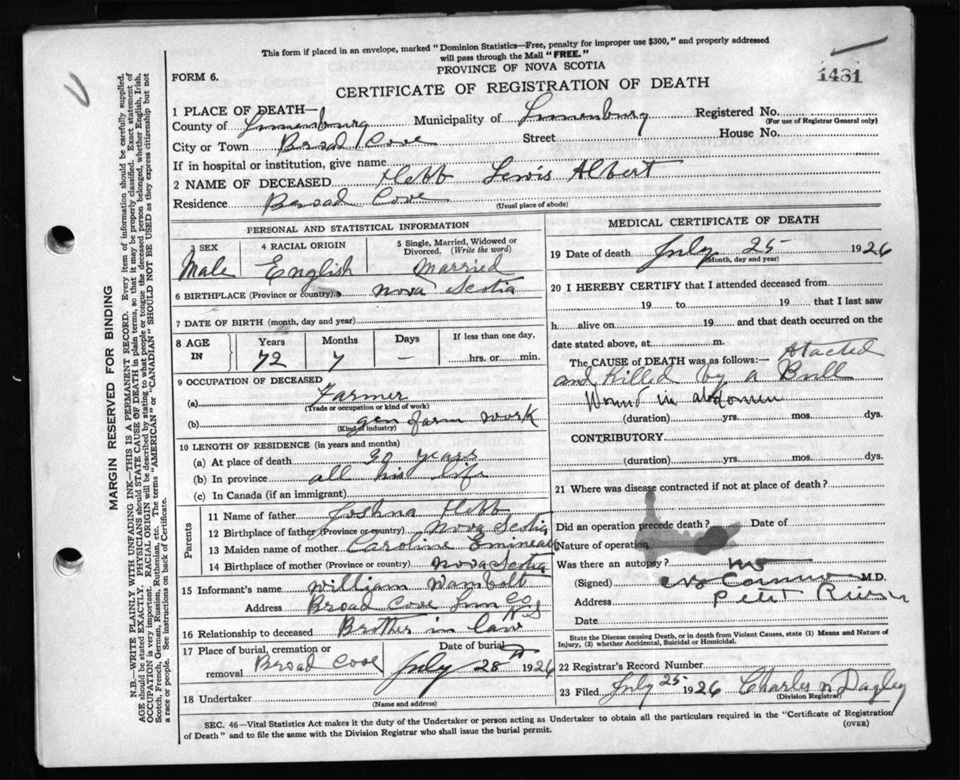 This form if placed in an envelope, marked "Dominion Statistics—Free, penalty for improper use $300," and properly addressed
will pass through the Mail "FREE."
PROVINCE OF NOVA SCOTIA
FORM 6.
1481
CERTIFICATE OF REGISTRATION OF DEATH
1 PLACE OF DEATH—
County of Lunenburg Municipality of Lunenburg Registered No.
(For use of Registrar General only)
City or Town Broad Cove Street House No.
If in hospital or institution, give name
2 NAME OF DECEASED Hebb Lewis Albert
Residence Broad Cove
(Usual place of abode)
PERSONAL AND STATISTICAL INFORMATION
3 SEX 4 RACIAL ORIGIN 5 Single, Married, Widowed or
Divorced. (Write the word)
Male English Married
6 BIRTHPLACE (Province or country) Nova Scotia
7 DATE OF BIRTH (month, day and year)
8 AGE IN Years Months Days If less than one day,
72 7 — hrs. or min.
9 OCCUPATION OF DECEASED
(a) Farmer
(Trade or occupation or kind of work)
(b) gen farm work
(Kind of industry)
10 LENGTH OF RESIDENCE (in years and months)
(a) At place of death 30 years
(b) In province all his life
(c) In Canada (if an immigrant)
Parents
11 Name of father Joshua Hebb
12 Birthplace of father (Province or country) Nova Scotia
13 Maiden name of mother Caroline
14 Birthplace of mother (Province or country) Nova Scotia
15 Informant's name William Wambolt
Address Broad Cove Lun Co
N S
16 Relationship to deceased Brother in law
17 Place of burial, cremation or Date of burial
removal Broad Cove July 28 1926
18 Undertaker
(Name and address)
MEDICAL CERTIFICATE OF DEATH
19 Date of death July 25 1926
(Month, day and year)
20 I HEREBY CERTIFY that I attended deceased from
19 to 19 that I last saw
h alive on 19 and that death occurred on the
date stated above, at m.
The CAUSE of DEATH was as follows:— Atacted
and Killed by a Bull
Wound in abdomen
(duration) yrs. mos. dys.
CONTRIBUTORY
(duration) yrs. mos. dys.
21 Where was disease contracted if not at place of death?
Did an operation precede death? Date of
Nature of operation
Was there an autopsy? no
(Signed) M.D.
Address Petit Riviere
Date
State the Disease causing Death, or in death from Violent Causes, state (1) Means and Nature of
Injury, (2) whether Accidental, Suicidal or Homicidal.
22 Registrar's Record Number
23 Filed July 25 1926 Charles N Dagley
(Division Registrar)
SEC. 46—Vital Statistics Act makes it the duty of the Undertaker or person acting as Undertaker to obtain all the particulars required in the "Certificate of Registration
of Death" and to file the same with the Division Registrar who shall issue the burial permit.
(OVER)
MARGIN RESERVED FOR BINDING
N.B.—WRITE PLAINLY WITH UNFADING INK—THIS IS A PERMANENT RECORD. Every item of information should be carefully supplied.
AGE should be stated EXACTLY. PHYSICIANS should STATE CAUSE OF DEATH in plain terms, so that it may be properly classified. Exact statement of
OCCUPATION is very important. RACIAL ORIGIN will be described by stating to what people or tongue the deceased person belonged, whether English, Irish,
Scotch, French, German, Russian, Ruthenian, etc. The terms "AMERICAN" or "CANADIAN" SHOULD NOT BE USED as they express citizenship but not
a race or people. See instructions on back of Certificate.